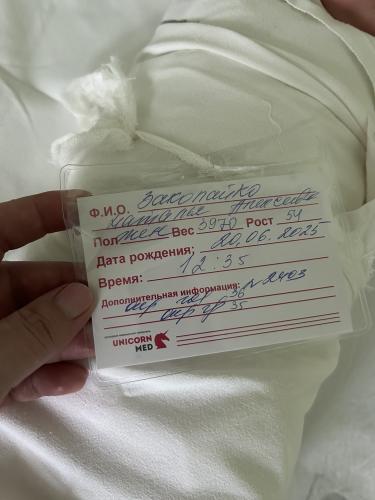 Ф.И.О. Закопайко
Наталья Алексеевна
Пол жен Вес 3970 Рост 54
Дата рождения: 20.06.2025
Время: 12:35
Дополнительная информация: N 2403
окр гол 36
окр гр 35
UNICORN
MED